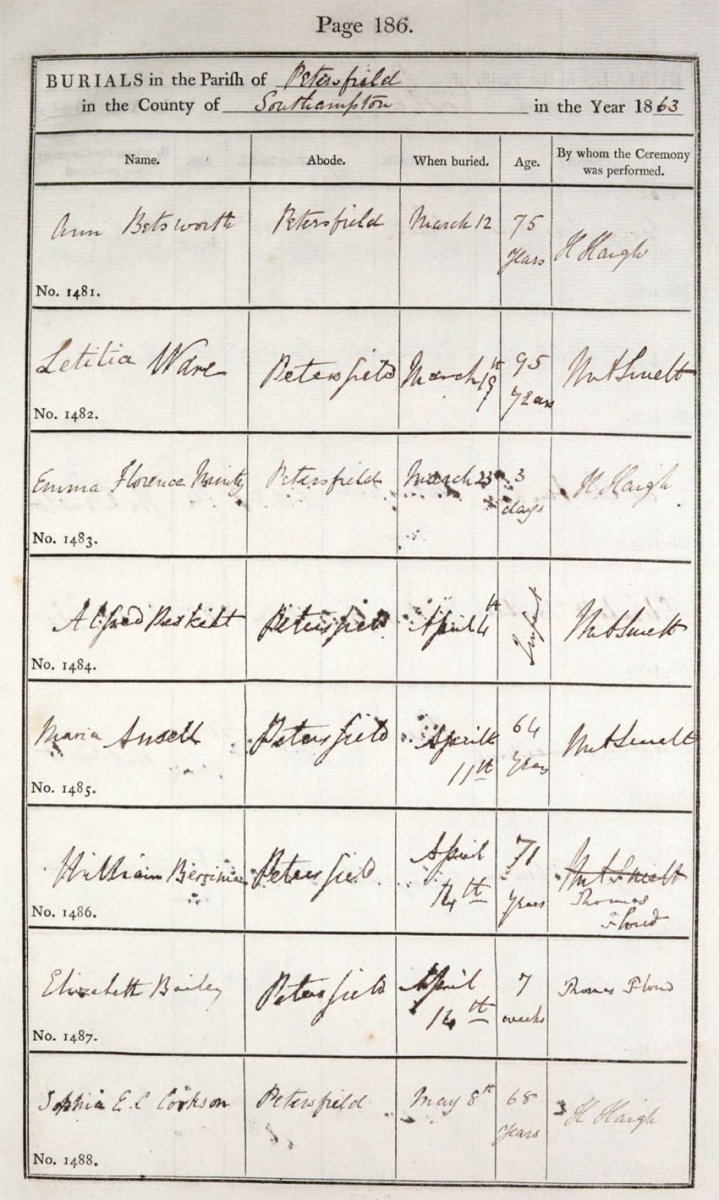 Page 186.
BURIALS in the Parish of Petersfield
in the County of Southampton in the Year 1863
Name. Abode. When buried. Age. By whom the Ceremony was performed.
Ann Betsworth Petersfield March 12 75 Years H Haigh
No. 1481.
Letitia Ware Petersfield March 19th 95 Years
No. 1482.
Emma Florence Petersfield March 23 3 days H Haigh
No. 1483.
Alfred Petersfield April 4th Infant
No. 1484.
Maria Ansell Petersfield April 11th 64 Years
No. 1485.
William Petersfield April 14th 71 Years Thomas
No. 1486.
Elizabeth Bailey Petersfield April 14th 7 weeks Thomas
No. 1487.
Sophia E. C Cookson Petersfield May 8th 68 Years H Haigh
No. 1488.